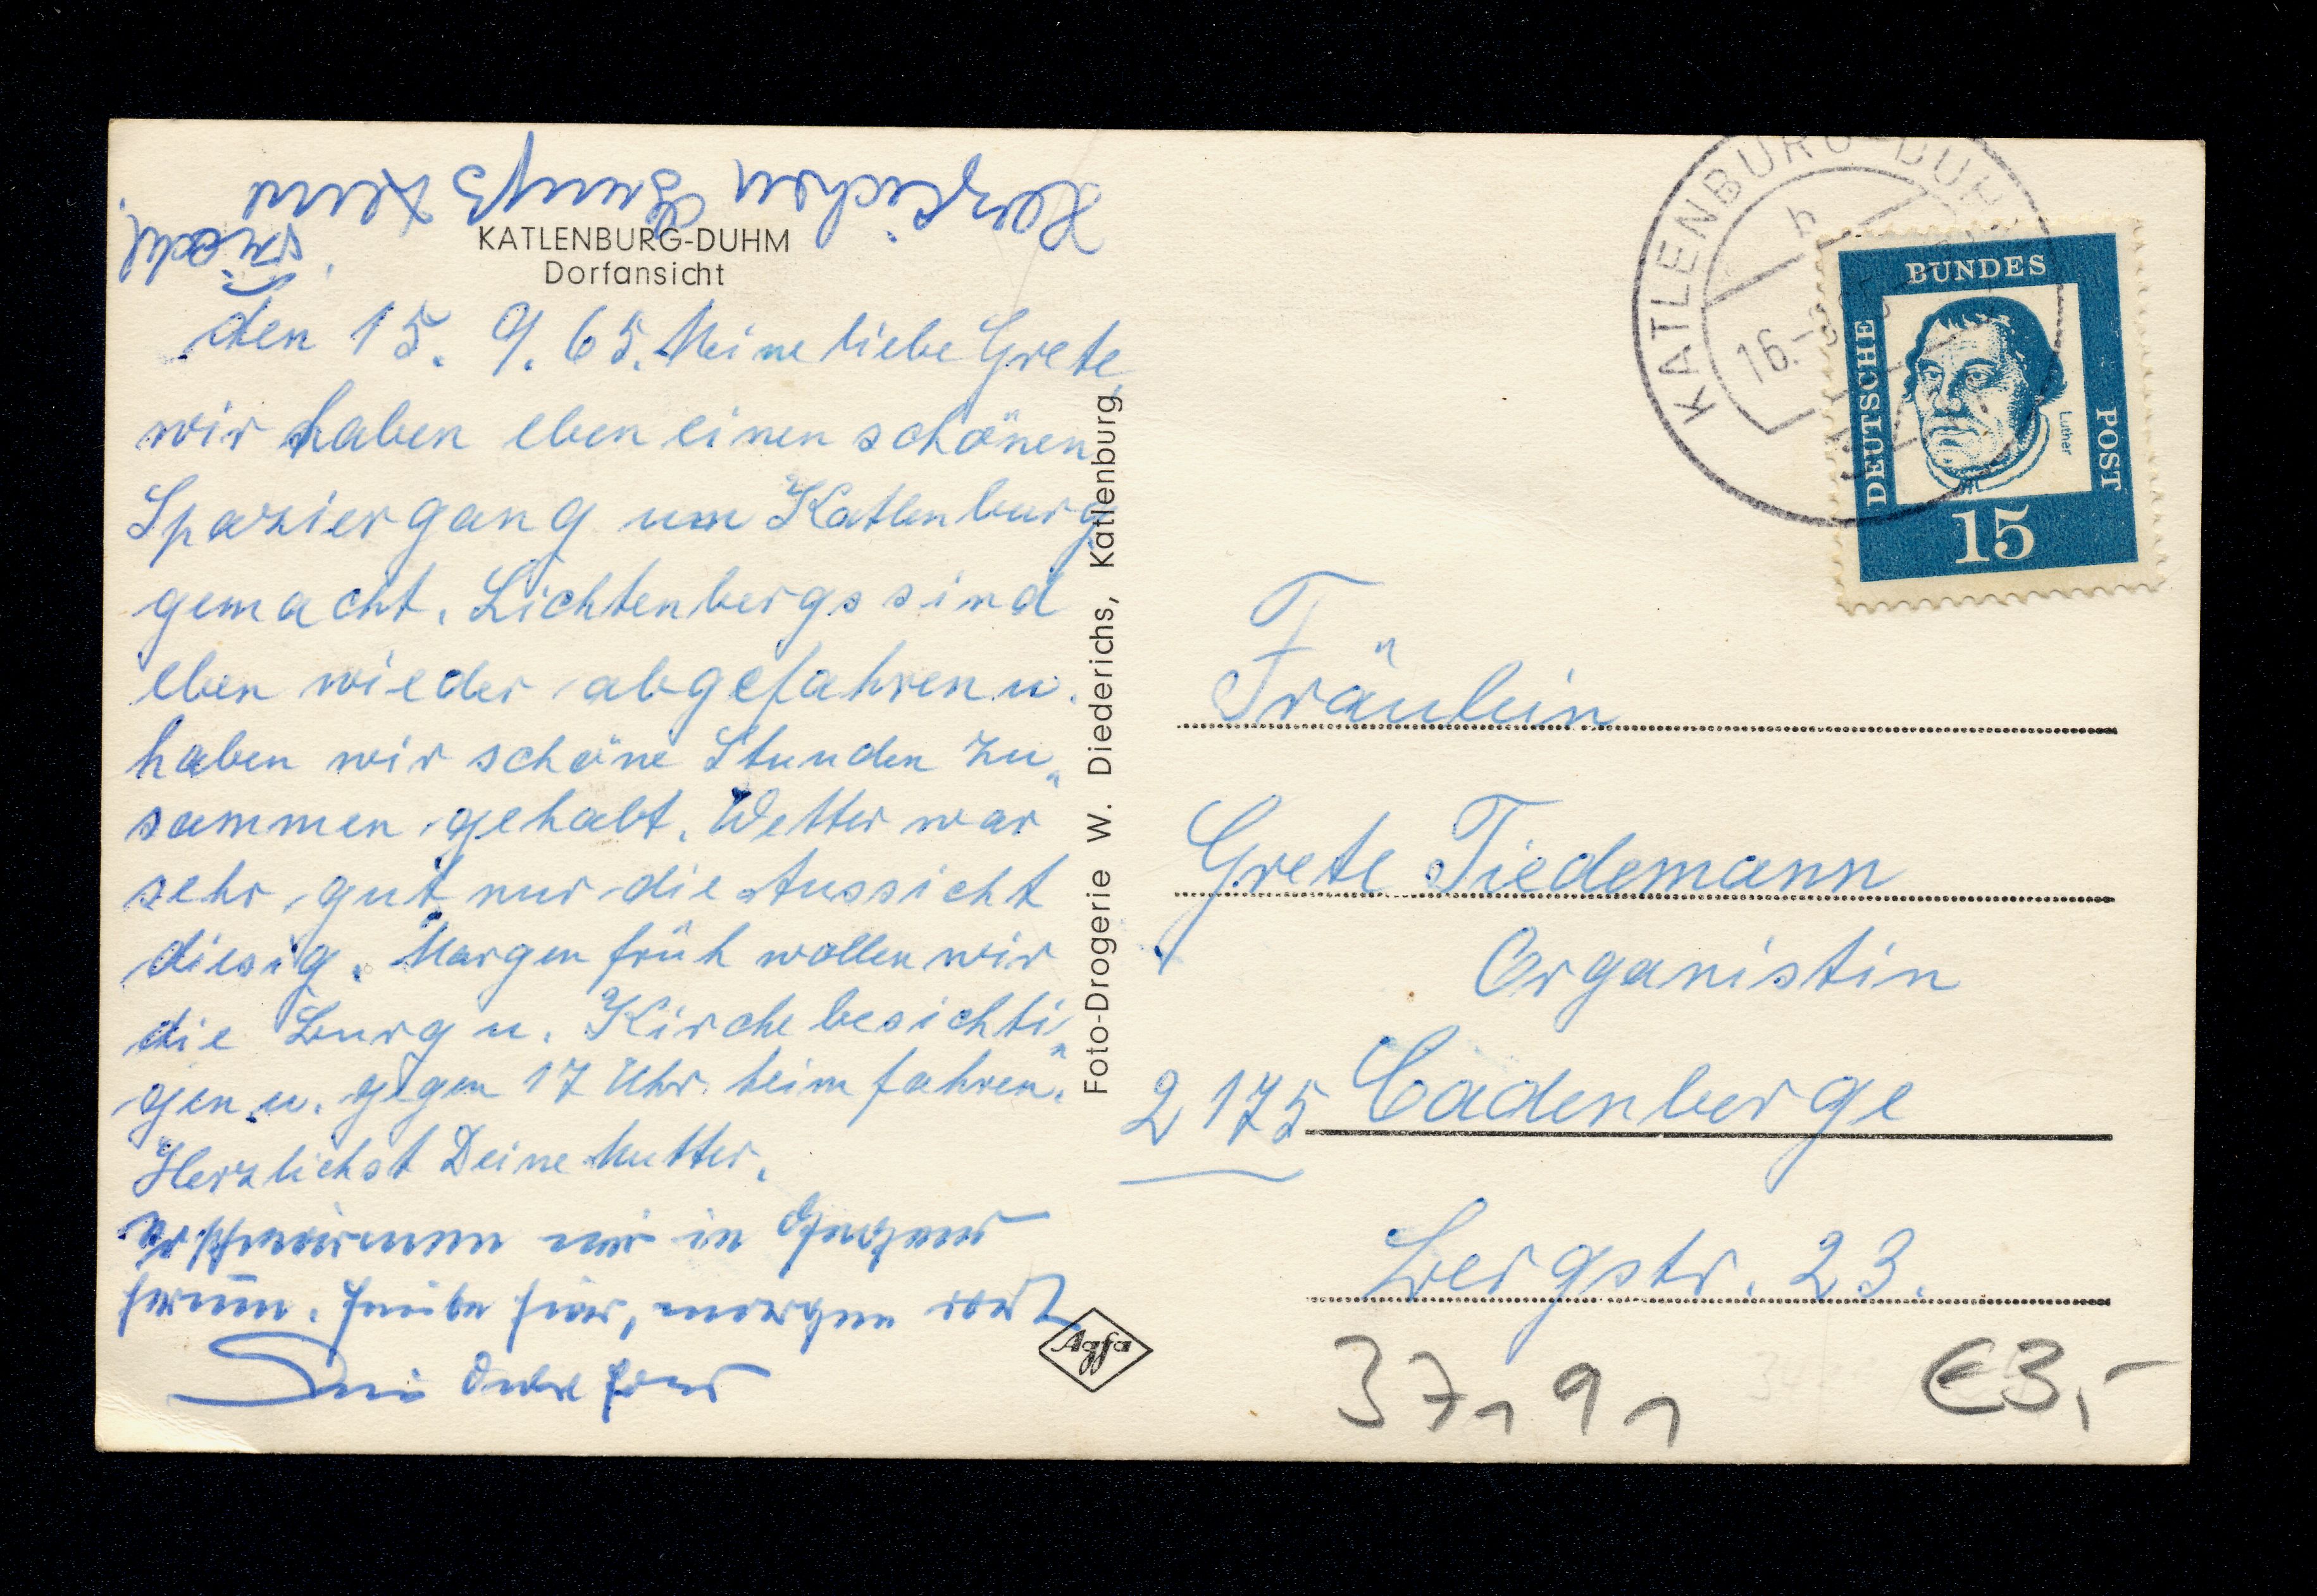 Herzlichen Gruß
KATLENBURG-DUHM
Dorfansicht
den 15. 9. 65. Meine liebe Grete,
wir haben eben einen schönen
Spaziergang um Katlenburg
gemacht. Lichtenbergs sind
eben wieder abgefahren u.
haben wir schöne Stunden zu„
sammen gehabt. Wetter war
sehr gut nur die Aussicht
diesig. Morgen früh wollen wir
die Burg u. Kirche besichti„
gen u. gegen 17 Uhr heimfahren.
Herzlichst Deine Mutter.
wir in
herum. Heute hier, morgen dort
Foto-Drogerie W. Diederichs, Katlenburg
Agfa
KATLENBURG-DUHM
h
16.-
DEUTSCHE
BUNDES
POST
Luther
15
Fräulein
Grete Tiedemann
Organistin
2175 Cadenberge
Bergstr. 23.
37,91
€3,-